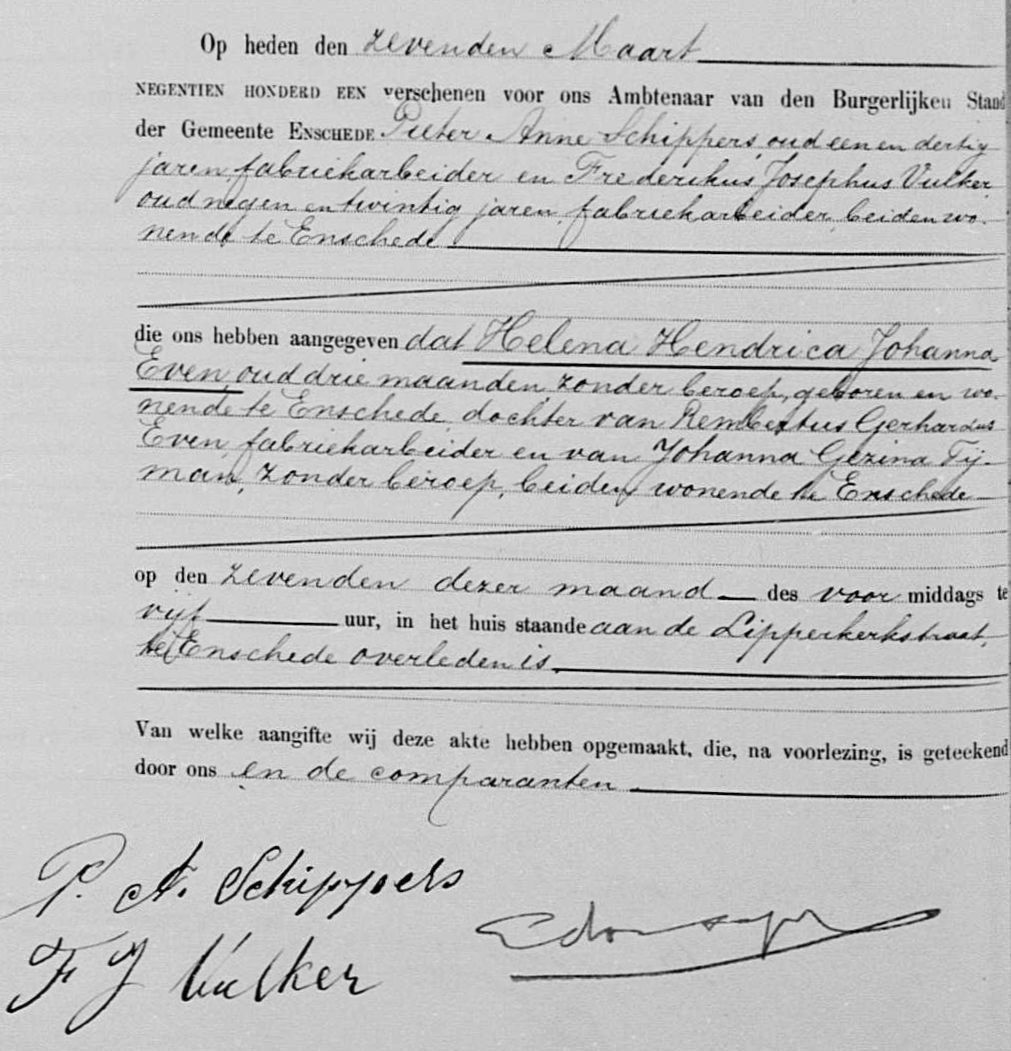 Op heden den zevenden Maart
NEGENTIEN HONDERD EEN verschenen voor ons Ambtenaar van den Burgerlijken Stand
der Gemeente ENSCHEDE Pieter Anne Schippers, oud een en dertig
jaren, fabriekarbeider en Frederikus Josephus Vulker
oud negen en twintig jaren, fabriekarbeider, beiden wo-
nende te Enschede
die ons hebben aangegeven dat Helena Hendrica Johanna
Even, oud drie maanden, zonder beroep, geboren en wo-
nende te Enschede, dochter van Rembertus Gerhardus
Even, fabriekarbeider en van Johanna Gezina Tij-
man, zonder beroep, beiden wonende te Enschede
op den zevenden dezer maand des voor middags te
vijf uur, in het huis staande aan de Lipperkerkstraat,
te Enschede overleden is.
Van welke aangifte wij deze akte hebben opgemaakt, die, na voorlezing, is geteekend
door ons en de comparanten
P. A. Schippers
F J Vulker